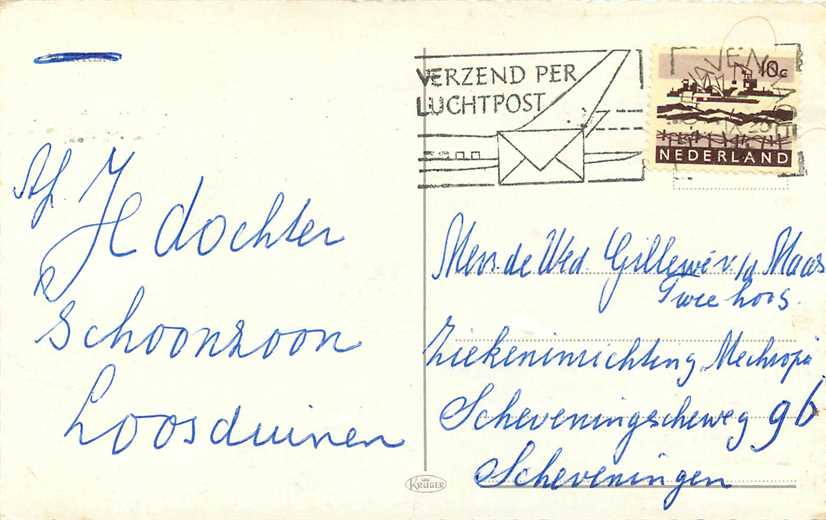 VERZEND PER
LUCHTPOST
10c
NEDERLAND
Af H dochter
schoonzoon
Loosduinen
Mevr. de Wed. Gillewé v/d Maas
Ziekeninrichting
Scheveningscheweg 96
Scheveningen
KRÜGER